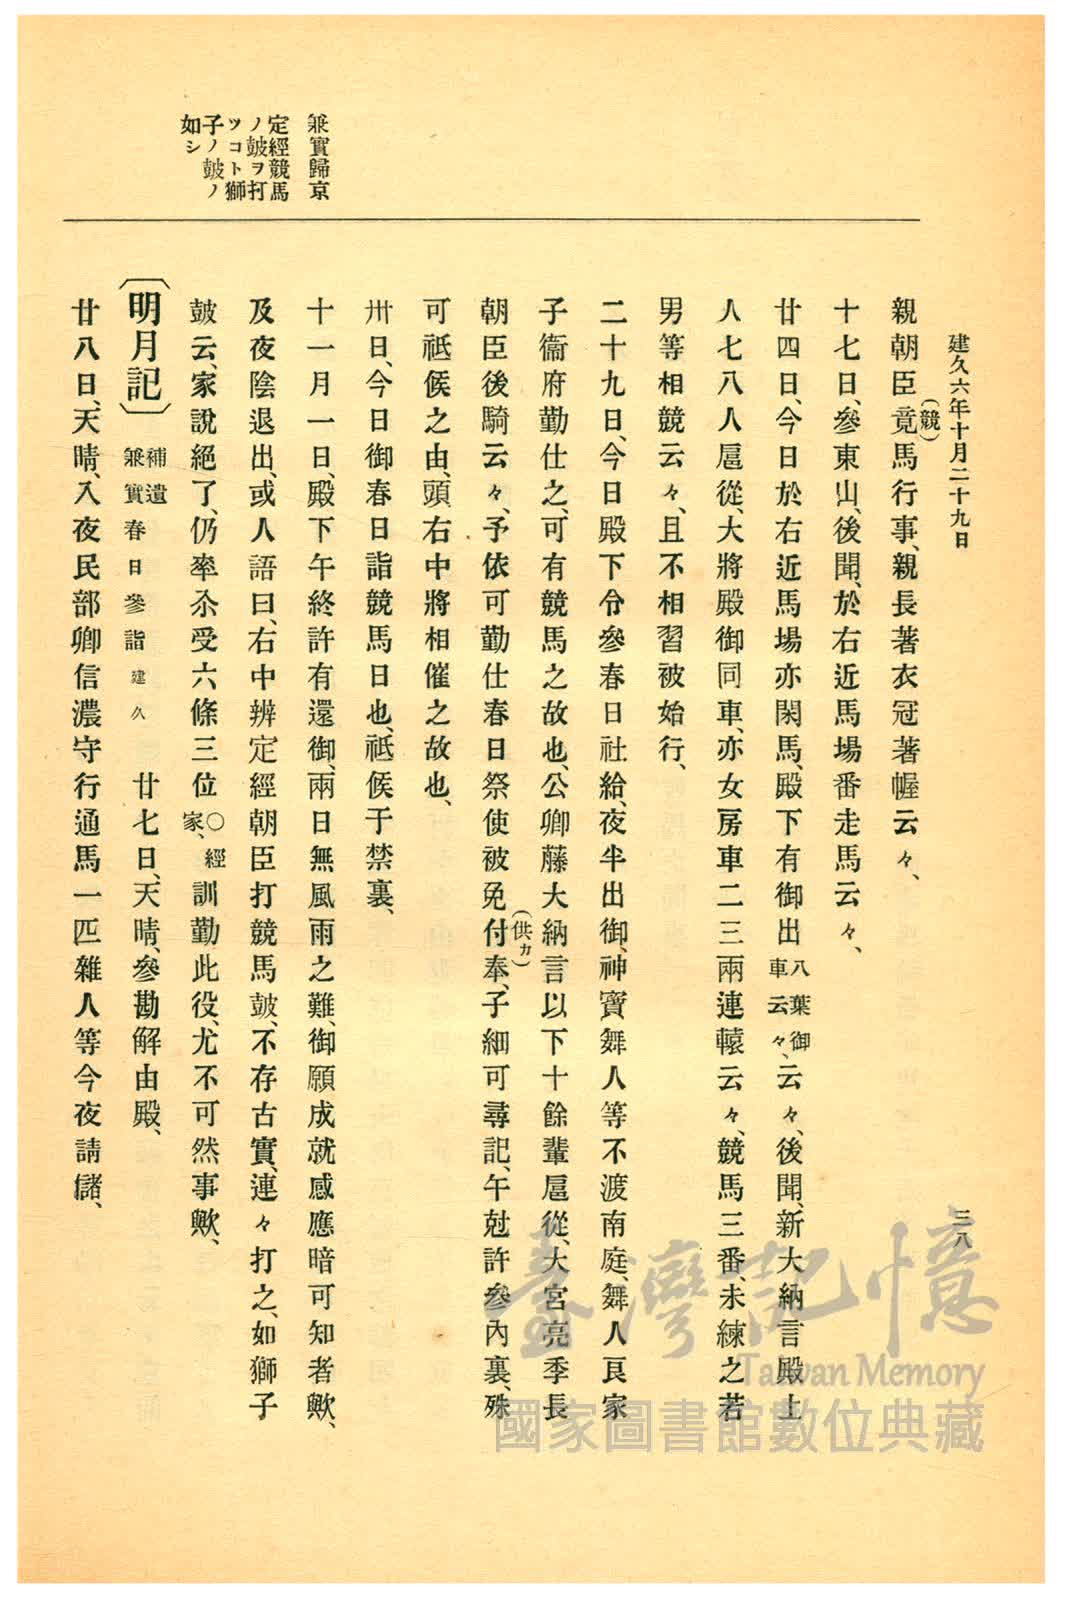 建久六年十月二十九日
三八
兼實歸京
定經競馬
ノ皷ヲ打
ツコト獅
子ノ皷ノ
如シ
親朝臣竟(競)馬行事、親長著衣冠著幄云々、
十七日、參東山、後聞、於右近馬場番走馬云々、
廿四日、今日於右近馬場亦閑馬、殿下有御出八葉御車云々、云々、後聞、新大納言殿上
人七八人扈從、大將殿御同車、亦女房車二三兩連轅云々、競馬三番、未練之若
男等相競云々、且不相習被始行、
二十九日、今日殿下令參春日社給、夜半出御、神寳舞人等不渡南庭、舞人良家
子衞府勤仕之、可有競馬之故也、公卿藤大納言以下十餘輩扈從、大宮亮季長
朝臣後騎云々、予依可勤仕春日祭使被免付(供カ)奉、子細可尋記、午尅許參內裏、殊
可祗候之由、頭右中將相催之故也、
卅日、今日御春日詣競馬日也、祗候于禁裏、
十一月一日、殿下午終許有還御、兩日無風雨之難、御願成就感應暗可知者歟、
及夜陰退出、或人語曰、右中辨定經朝臣打競馬皷、不存古實、連々打之、如獅子
皷云、家說絕了、仍率尒受六條三位○經家、訓勤此役、尤不可然事歟、
〔明月記〕補遺兼實春日參詣建久 廿七日、天晴、參勘解由殿、
廿八日、天晴、入夜民部卿信濃守行通馬一匹雜人等今夜請儲、
臺灣記憶
Taiwan Memory
國家圖書館數位典藏